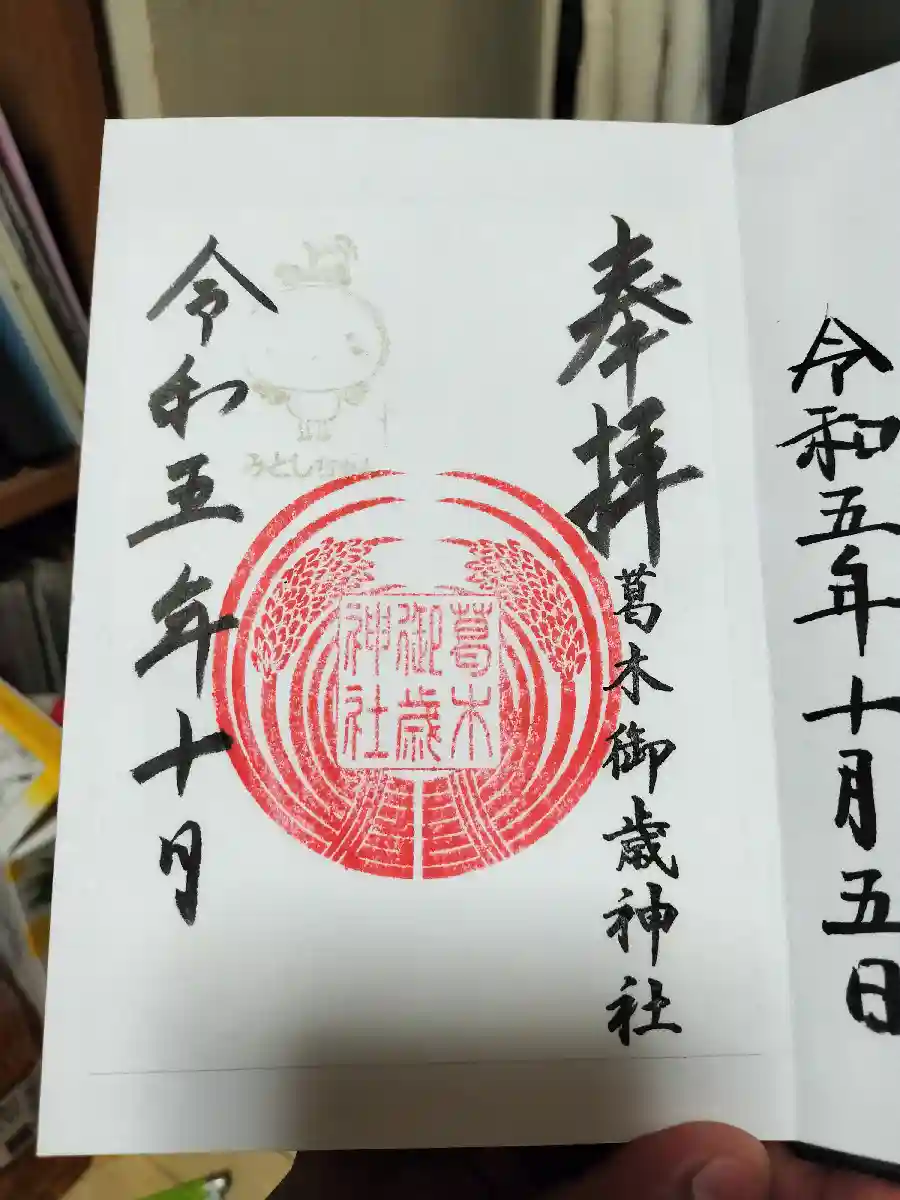 令和五年十月五日
奉拝
葛木御歳神社
葛木
御歳
神社
みとしちゃん
令和五年十月